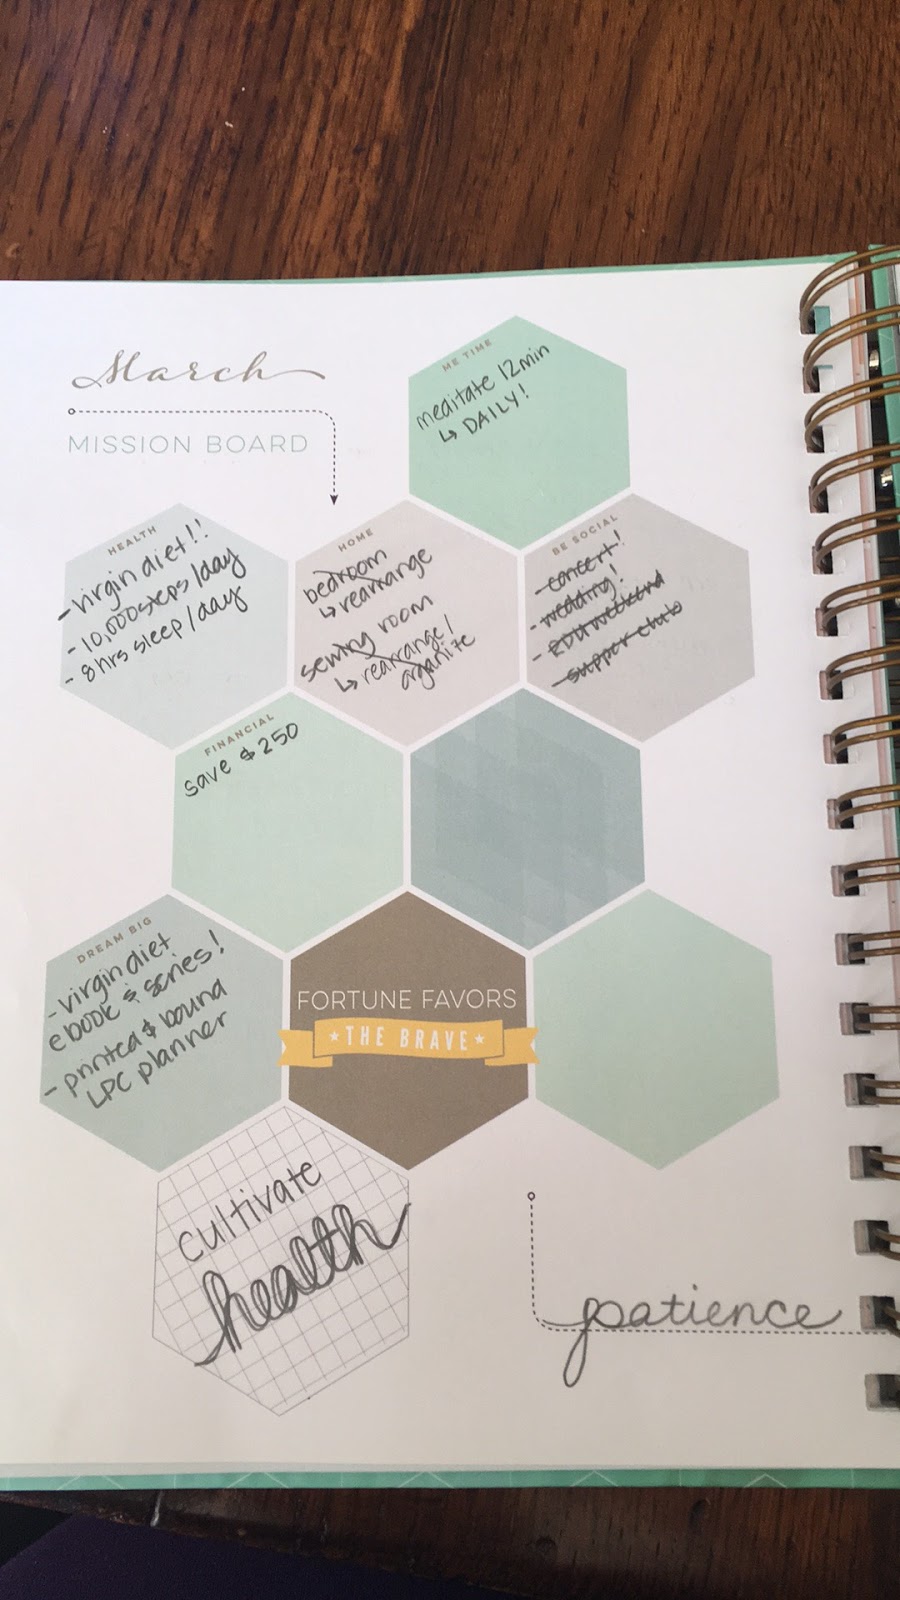 March
MISSION BOARD
ME TIME
meditate 12min
↳ DAILY!
HEALTH
- virgin diet!!
- 10,000 steps/day
- 8 hrs sleep/day
HOME
bedroom
↳ rearrange
sewing room
↳ rearrange/
organize
BE SOCIAL
- concert!
- wedding!
- weekend
- supper club
FINANCIAL
save $250
DREAM BIG
- virgin diet
ebook & series!
- printed & bound
LPC planner
FORTUNE FAVORS
THE BRAVE
cultivate
health
patience